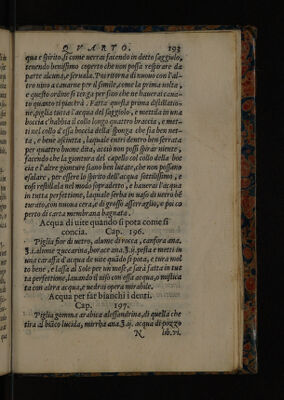 QVARTO. 193
qua e spirito, si come uerrai facendo in detto saggiuolo,
tenendo benissimo coperto che non possa respirare da
parte alcuna, e serualo. Poi ritorna di nuouo con l'al-
tro uino a cauarne per il simile, come la prima uolta,
e questo ordine si tenga per fino che ne hauerai caua-
to quanto ti piacerà. Fatta questa prima distillatio-
ne, piglia tutta l'acqua del saggiuolo, e mettila in una
boccia c'habbia il collo longo quattro braccia, e met-
ti nel collo d'essa boccia della sponga che sia ben net-
ta, e bene asciutta, laquale entri dentro ben serrata,
per quattro buone dita, acciò non possi spirar niente,
facendo che la giontura del capello col collo della boc
cia e l'altre gionture siano ben lutate, che non possano
esalare, per essere lo spirito dell'acqua sottilissimo, e
cosi restillala nel modo sopradetto, e hauerai l'acqua
in tutta perfettione, laquale serba in uaso di uetro bē
turato, con buona cera, e di grosso asserraglio, e poi co
perto di carta membrana bagnata.
Acqua di uite quando si pota come si
concia. Cap. 196.
Piglia fior di uetro, alume di rocca, canfora ana.
ʒ.i. alume zuccarina, borace ana.ʒ.ii. pesta e metti in
una caraffa d'acqua de uite quādo si pota, e tura mol
to bene, e lassa al Sole per un mese, e sarà fatta in tut
ta perfettione, lauando il uiso con essa acqua, o meschia
ta con altra acqua, e uedrai opera mirabile.
Acqua per far bianchi i denti.
Cap. 197.
Piglia gomma arabica alessandrina, di quella che
tira al biāco lucida, mirrha ana.ʒ.ii. acqua di pozzo
N lib.vi.